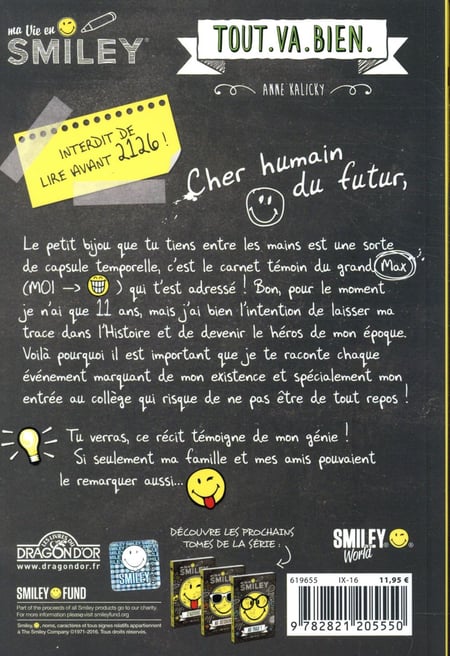 ma Vie en
SMILEY®
TOUT.VA.BIEN.
ANNE KALICKY
INTERDIT DE
LIRE AVANT 2126 !
Cher humain
du futur,
Le petit bijou que tu tiens entre les mains est une sorte
de capsule temporelle, c'est le carnet témoin du grand Max
(MOI —> ) qui t'est adressé ! Bon, pour le moment
je n'ai que 11 ans, mais j'ai bien l'intention de laisser ma
trace dans l'Histoire et de devenir le héros de mon époque.
Voilà pourquoi il est important que je te raconte chaque
événement marquant de mon existence et spécialement mon
entrée au collège qui risque de ne pas être de tout repos !
Tu verras, ce récit témoigne de mon génie !
Si seulement ma famille et mes amis pouvaient
le remarquer aussi...
DÉCOUVRE LES PROCHAINS
TOMES DE LA SÉRIE :
LES LIVRES DU
DRAGON D'OR
www.dragondor.fr
SMILEY
SMILEY
World
SMILEY FUND
Part of the proceeds of all Smiley products go to our charity.
For more information please visit smileyfund.org
Smiley, , noms, caractères et tous signes relatifs appartiennent
à The Smiley Company ©1971-2016. Tous droits réservés.
619655 IX-16 11,95 €
9 782821 205550